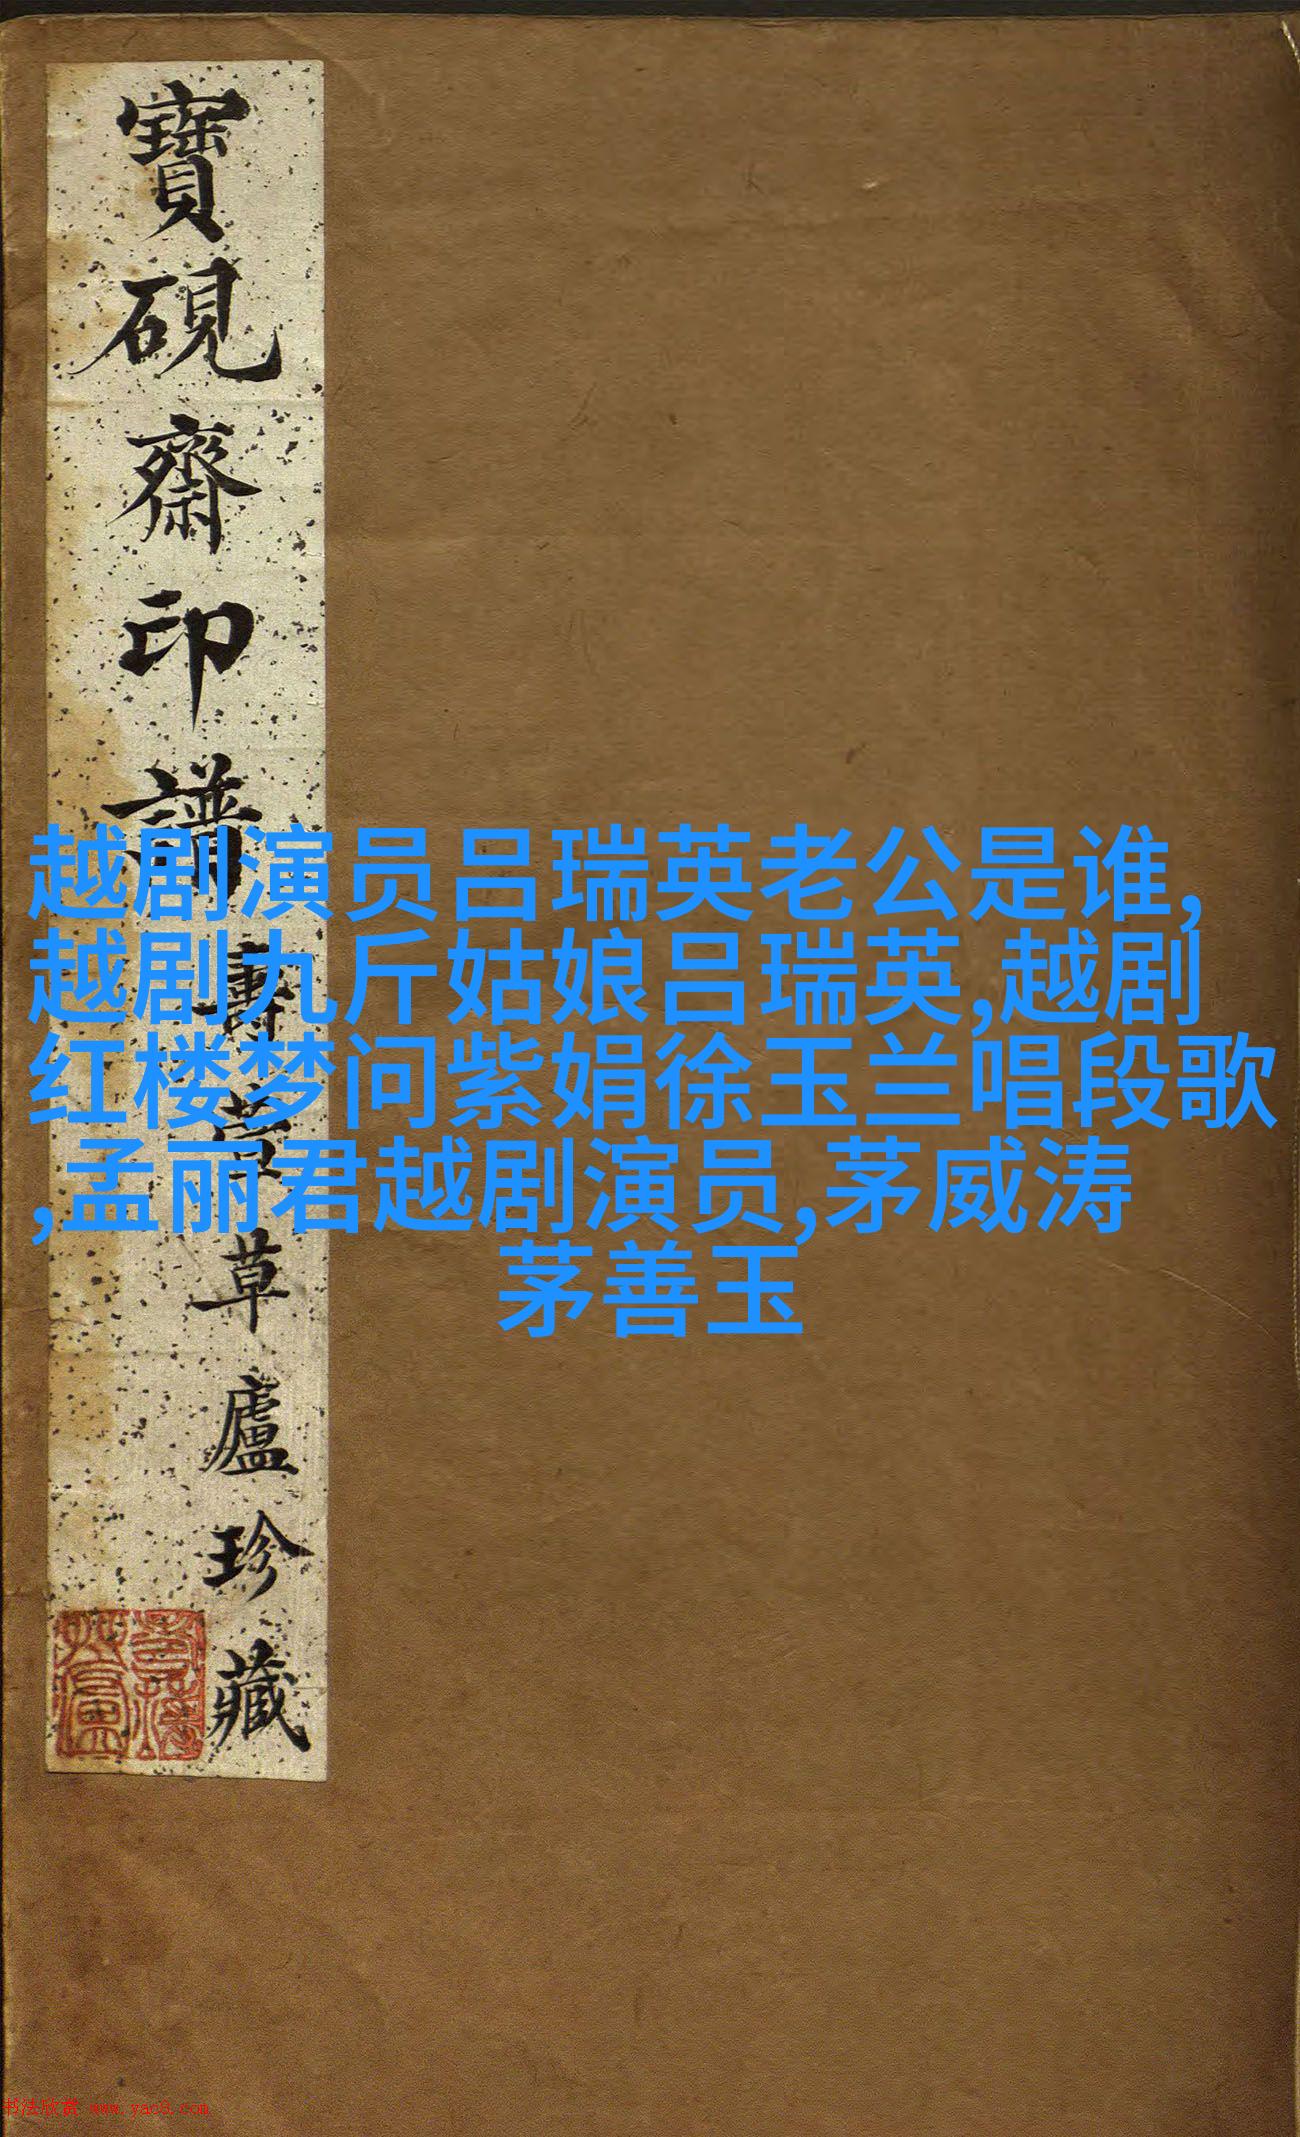 寶硯齋印譜
草廬珍藏
越剧演员吕瑞英老公是谁,
越剧九斤姑娘吕瑞英,越剧
红楼梦问紫娟徐玉兰唱段歌
,孟丽君越剧演员,茅威涛
茅善玉
书法欣赏 www.yac8.com